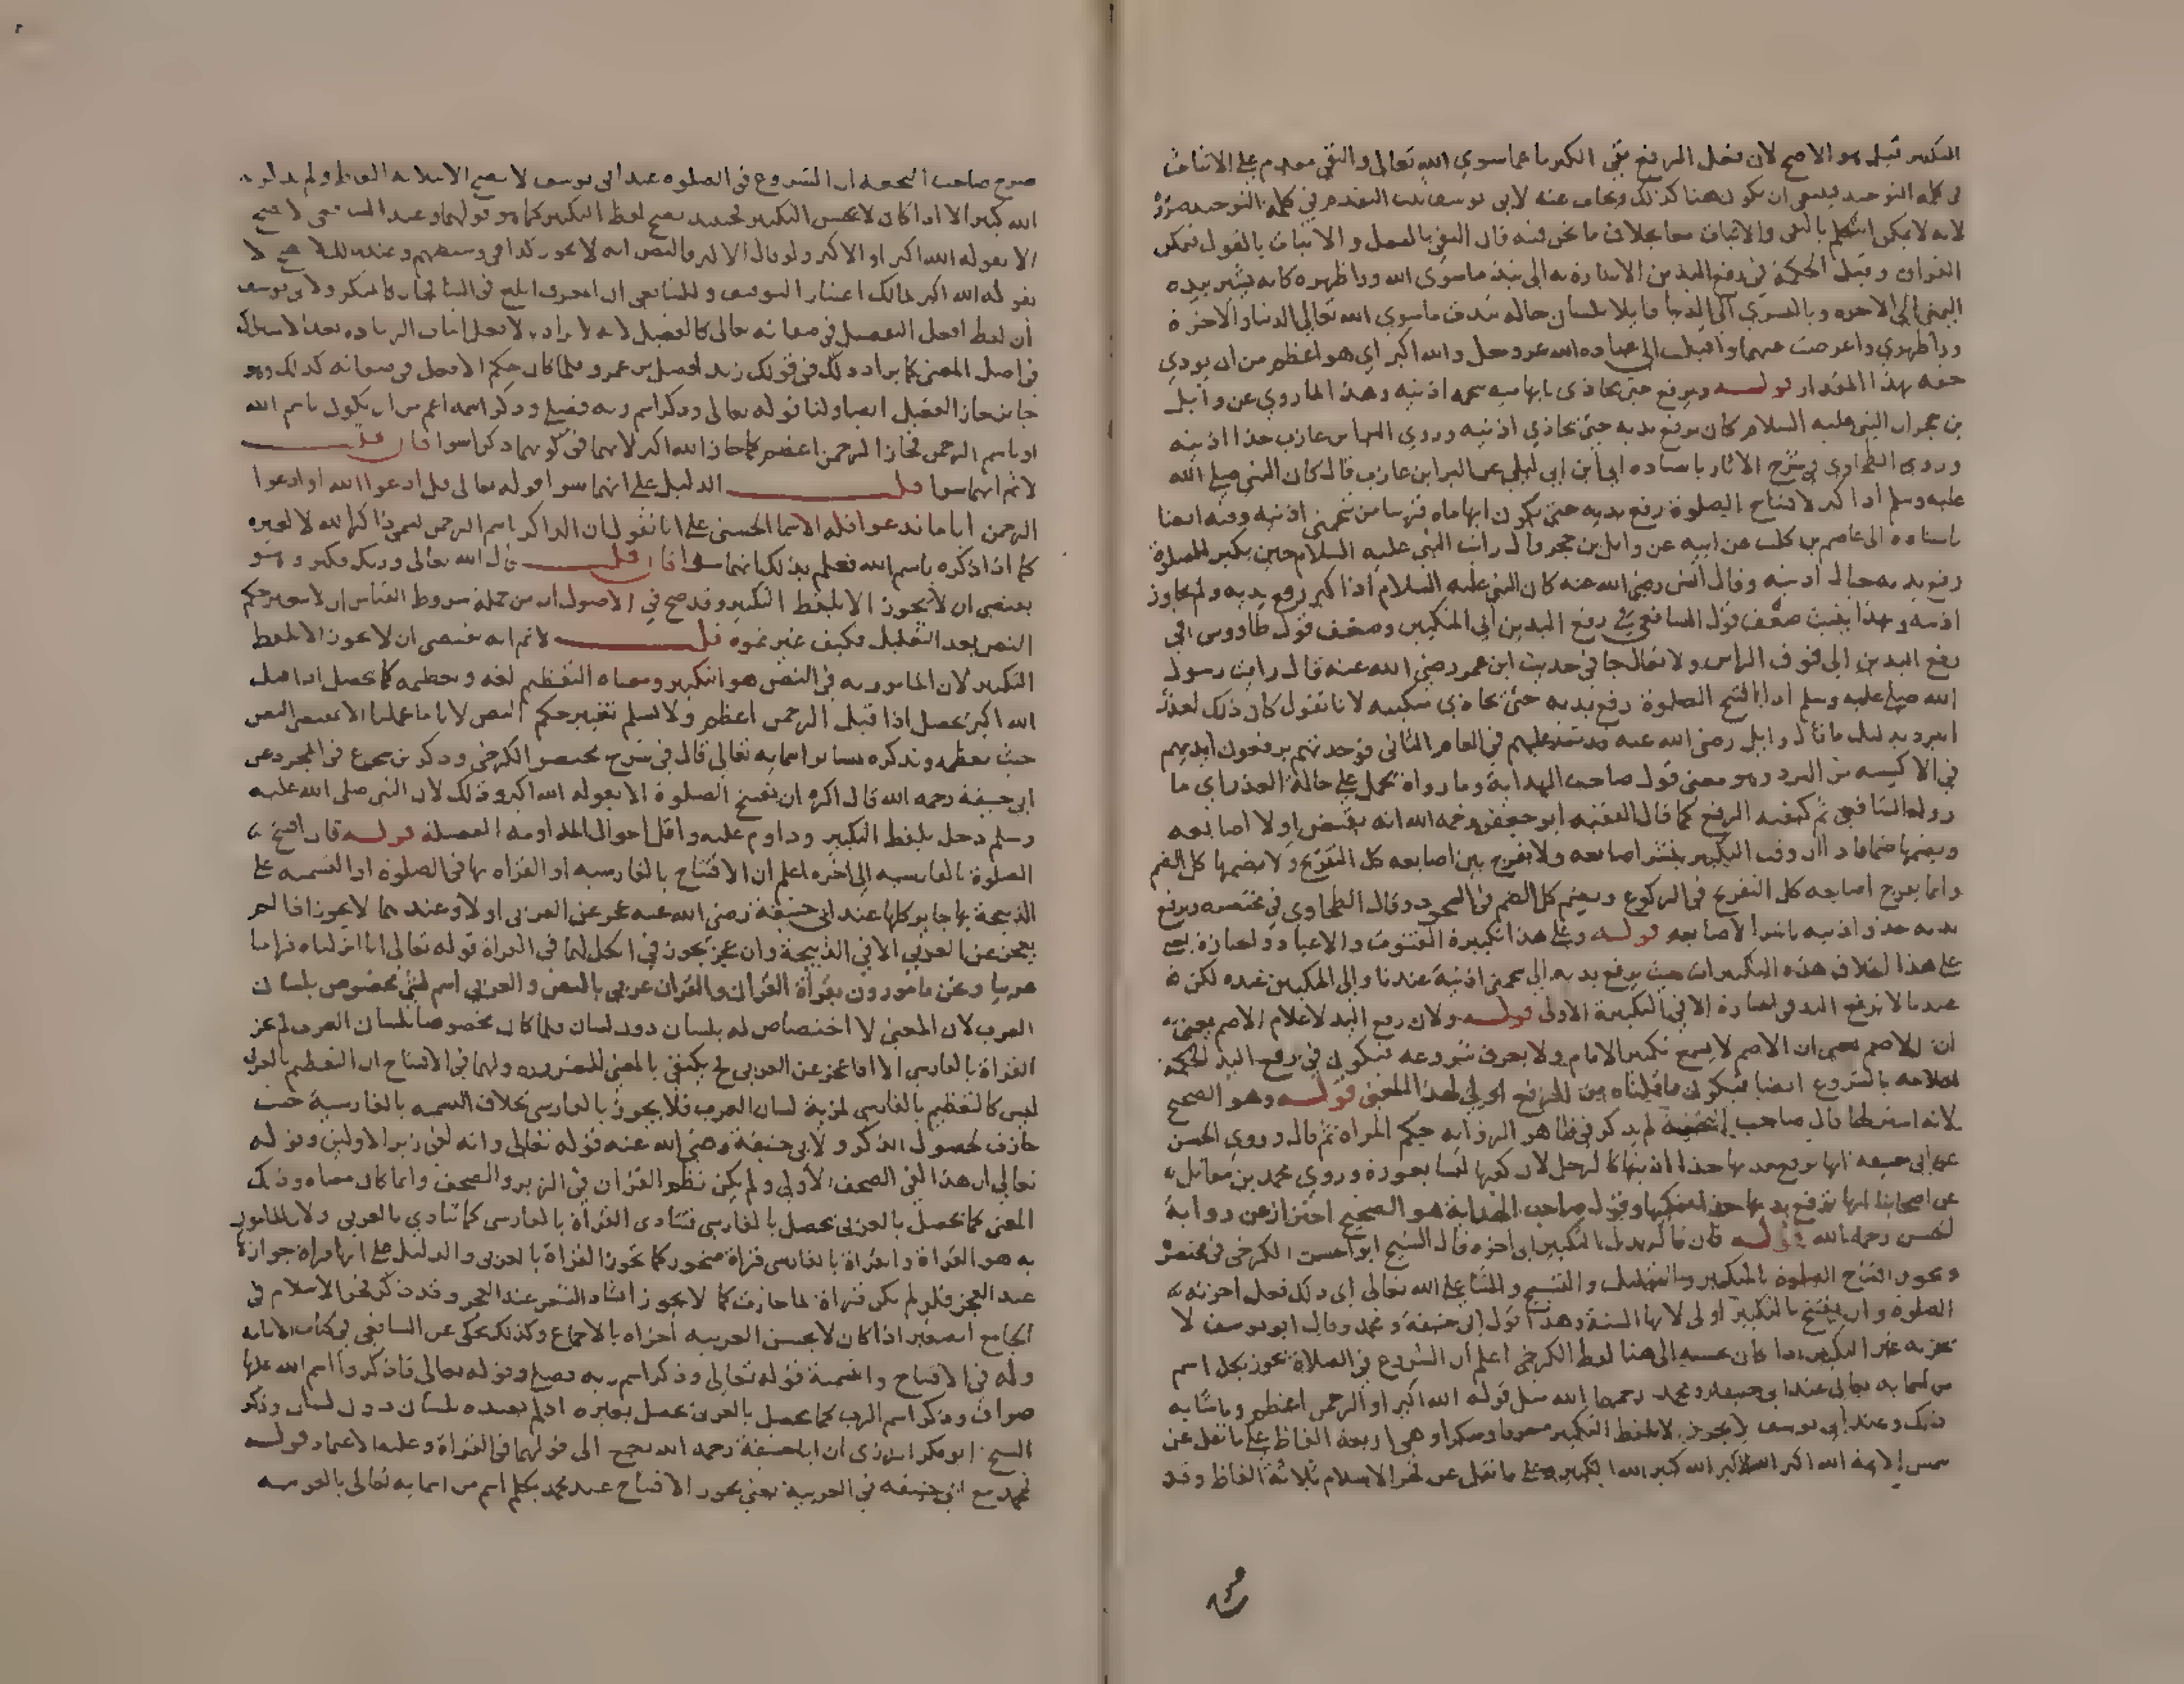 التكبير قبله هو الاصح لان بفعل الرفع نفى الكبريا عما سوى الله تعالى والنفي مقدم على الاثبات
في كلمة التوحيد فينبغي ان يكون هنا كذلك ويجاب عنه لابي يوسف التقدم في كلمة التوحيد ضرورة
لانه لا يمكن التكلم بالنفي والاثبات معا بخلاف ما نحن فيه فان النفي بالفعل والاثبات بالقول فيمكن
القران وقيل الحكمة في رفع اليد من الاشارة به الى نبذ ما سوى الله وراظهره كانه يشير بيده
اليمنى الى الاخره وباليسرى الى الدنيا قايلا بلسان حاله نبذت ما سوى الله تعالى الدنيا والاخرة
وراظهري واعرضت عنهما واقبلت الى عباده الله عز وجل والله اكبر اي هو اعظم من ان يودي
حقه بهذا المقدار قوله ويرفع حتى يحاذي بابهاميه شحمه اذنيه وهذا لما روي عن وايل
بن حجر ان النبي عليه السلام كان يرفع يديه حتى يحاذي اذنيه وروي البرا بن عازب حذا اذنيه
وروى الطحاوي في شرح الاثار باسناده الى ابن ابي ليلى عن البرا بن عازب قال كان النبي صلى الله
عليه وسلم اذا كبر لافتتاح الصلوة رفع يديه حتى يكون ابهاماه قريبا من شحمتي اذنيه وفيه ايضا
باسناده الى عاصم بن كليب عن ابيه عن وايل بن حجر قال رايت النبي عليه السلام حين يكبر للصلوة
رفع يديه حيال اذنيه وقال انس رضي الله عنه كان النبي عليه السلام اذا كبر رفع يديه ولم يجاوز
اذنيه وبهذا يثبت ضعف قول الشافعي في رفع اليدين الى المنكبين وضعف قول طاووس في
رفع اليدين الى فوق الراس ولا يقال جا في حديث ابن عمر رضي الله عنه قال رايت رسول
الله صلى عليه وسلم اذا افتتح الصلوة رفع يديه حتى يحاذي منكبيه لانا نقول كان ذلك لعذر
البرد بدليل ما قال وايل رضي الله عنه قدمت عليهم في العام الثاني فوجدتهم يرفعون ايديهم
في الاكيسه من البرد وهو معنى قول صاحب الهداية وما رواه يحمل على حالة العذر اي ما
رواه الشافعي ثم كيفيه الرفع كما قال الفقيه ابو جعفر رحمه الله انه يقبض اولا اصابعه
ويضمها ضما فاذا ان وقت التكبير ينشر اصابعه ولا يفرج بين اصابعه كل التفريج ولا يضمها كل الضم
وانما يفرج اصابعه كل التفريج في الركوع ويضم كل الضم في السجود وقال الطحاوي في مختصره ويرفع
يديه حذو اذنيه ناشرا لاصابعه قوله وعلى هذا تكبيرة القنوت والاعياد والجنازة يعني
على هذا الخلاف هذه التكبيرات حيث يرفع يديه الى شحمتي اذنيه عندنا والى المنكبين عنده لكن
عندنا لا يرفع اليد في الجنازة الا في التكبيرة الاولى قوله ولان رفع اليد لاعلام الاصم يعني
ان الاصم لا يسمع تكبير الامام ولا يعرف شروعه فيكون في رفع اليد الحكمة
اعلامه بالشروع ايضا فيكون ما قلناه من الرفع اولى لهذا المعنى قوله وهو الصحيح
لانه استر لها قال صاحب التحفة لم يذكر في ظاهر الرواية حكم المراه ثم قال وروي الحسن
عن ابي حنيفه انها ترفع يديها حذا اذنيها كالرجل لان كفيها ليسا بعورة وروي محمد بن مقاتل
عن اصحابنا انها ترفع يديها حذا منكبيها وقول صاحب الهداية هو الصحيح احتراز عن رواية
الحسن رحمه الله قوله فان قال بدل التكبير الى اخره قال الشيخ ابو الحسن الكرخي في مختصره
ويجوز افتتاح الصلوة بالتكبير والتهليل والتسبيح والثنا على الله تعالى اى ذلك فعل اجزته
الصلوة وان يفتتح بالتكبير اولى لانها السنة وهذا قول ابي حنيفة ومحمد وقال ابو يوسف لا
يجزيه غير التكبير اذا كان يحسنه الى هنا لفظ الكرخي اعلم ان الشروع في الصلاة يجوز بكل اسم
من اسمايه تعالى عند ابي حنيفه ومحمد رحمهما الله مثل قوله الله اكبر او الرحمن اعظم وما شابه
ذلك وعند ابي يوسف لا يجوز الا بلفظ التكبير معرفا ومنكرا وهي اربعة الفاظ على ما نقل عن
شمس الايمة الله اكبر الله الاكبر الله كبير الله الكبير وعلى ما نقل عن فخر الاسلام ثلاثة الفاظ وقد
صرح صاحب التحفه ان الشروع في الصلوه عند ابي يوسف لا يصح الا بثلاثة الفاظ ولم يذكر
الله كبير الا اذا كان لا يحسن التكبير فحينيذ يصح لفظ التكبير كما هو قولهما وعند الشافعي لا يصح
الا بقوله الله اكبر او الاكبر
بقوله الله اكبر لمالك اعتبار التوقيف وللشافعي ان المعرف ابلغ في الثنا فجاز كالمنكر ولابي يوسف
ان لفظ افعل التفضيل في صفاته تعالى كالفعيل لانه لا يراد بالافعل اثبات الزياده
في اصل المعنى كما يراد ذلك في قولك زيد افضل من عمرو فلما كان حكم الافعل في صفاته كذلك وهو
جايز جاز الفعيل ايضا ولنا قوله تعالى وذكر اسم ربه فصلى وذكر اسمه اعم من ان يكون باسم الله
او باسم الرحمن فجاز الرحمن اعظم كما جاز الله اكبر لانهما في كونهما ذكرا سوا فان قلت
لا نم انهما سوا قلت الدليل على انهما سوا قوله تعالى قل ادعوا الله او ادعوا
الرحمن ايا ما تدعوا فله الاسما الحسنى على انا نقول ان الذاكر باسم الرحمن يسمى ذاكر الله لا لغيره
كما اذا ذكره باسم الله فعلم بذلك انهما سوا فان قلت قال الله تعالى وربك فكبر وهو
يقتضي ان لا يجوز الا بلفظ التكبير وقد صح في الاصول ان من جملة شروط القياس ان لا يتغير حكم
النص بعد التعليل فكيف غيرتموه قلت لا نم انه يقتضي ان لا يجوز الا بلفظ
التكبير لان المامور به في النص هو التكبير ومعناه التعظيم لغه وتعظيمه كما يحصل اذا قيل
الله اكبر يحصل اذا قيل الرحمن اعظم ولا نسلم تغيير حكم النص لانا ما عملنا الا بمقتضى النص
حيث نعظمه ونذكره بساير اسمايه تعالى قال في شرح مختصر الكرخي وذكر في المجرد عن
ابي حنيفة رحمه الله قال اكره ان يفتتح الصلوة الا بقوله الله اكبر وذلك لان النبي صلى الله عليه
وسلم دخل بلفظ التكبير وداوم عليه واقل احوال المداومه الفضيلة قوله فان افتتح
الصلوة بالفارسيه الى اخره اعلم ان الافتتاح بالفارسيه او القراه بها في الصلوة او التسميه على
الذبيحة بها جايز كلها عند ابي حنيفة رضي الله عنه عجز عن العربي اولا وعندهما لا يجوز اذا لم
يعجز عن العربي الا في الذبيحة وان عجز يجوز في الكل لهما في القراة قوله تعالى انا انزلناه قرانا
عربيا ونحن مامورون بقراة القران والقران عربي بالنص والعربي اسم لشي مخصوص بلسان
العرب لان المعنى لا اختصاص له بلسان دون لسان فلما كان مخصوصا بلسان العرب لم يجز
القراة بالفارسي الا اذا عجز عن العربي فح يكتفى بالمعنى للضروره ولهما في الافتتاح ان التعظيم بالعربي
ليس كالتعظيم بالفارسي لمزية لسان العرب فلا يجوز بالفارسي بخلاف التسميه بالفارسية حيث
جازت لحصول الذكر ولابي حنيفة رضي الله عنه قوله تعالى وانه لفي زبر الاولين وقوله
تعالى ان هذا لفي الصحف الاولى ولم يكن نظم القران في الزبر والصحف وانما كان معناه وذلك
المعنى كما يحصل بالعربي يحصل بالفارسي فتتادى القراة بالفارسي كما تتادى بالعربي ولان المامور
به هو القراة والقراة بالفارسي قراة فيجوز كما تجوز القراة بالعربي والدليل على انها قراة جوازها
عند العجز فلو لم يكن قراة لما جازت كما لا يجوز انشاد الشعر عند العجز وقد ذكر فخر الاسلام في
الجامع الصغير اذا كان لا يحسن العربيه اجزاه بالاجماع وكذلك يحكى عن الشافعي في كتاب الابانه
وله في الافتتاح والتسمية قوله تعالى وذكر اسم ربه فصلى وقوله تعالى فاذكروا اسم الله عليها
صواف وذكر اسم الرب كما يحصل بالعربي يحصل بغيره اذ لم يقيده بلسان دون لسان وذكر
الشيخ ابو بكر الرازي ان ابا حنيفة رحمه الله رجع الى قولهما في القراة وعليه الاعتماد قوله
فمحمد مع ابي حنيفه في العربية يعني يجوز الافتتاح عند محمد بكل اسم من اسمايه تعالى بالعربيه